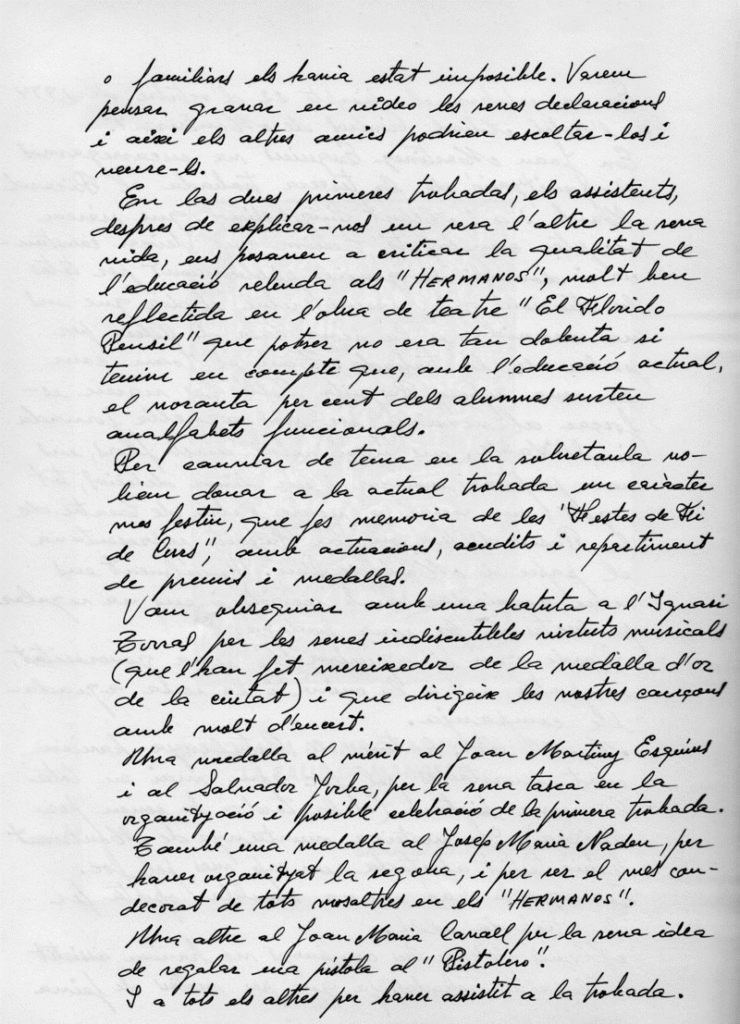 o familiars els havia estat imposible. Varem
pensar gravar en video les seves declaracions
i aixi els altres amics podrien escoltar-los i
veure-ls.
En las dues primeres trobadas, els assistents,
despres de explicar-nos un cera l'altre la seva
vida, ens posaven a criticar la qualitat de
l'educació rebuda als "HERMANOS", molt ben
reflectida en l'obra de teatre "El Florido
Pensil" que potser no era tan dolenta si
tenim en compte que, amb l'educació actual,
el noranta per cent dels alumnes surten
analfabets funcionals.
Per canviar de tema en la sobretaula vo-
liem donar a la actual trobada un caràcter
mes festiu, que fes memoria de les "Festes de Fi
de Curs", amb actuacions, acudits i repartiment
de premis i medallas.
Vam obsequiar amb una batuta a l'Ignasi
Torras per les seves indiscutibles virtuts musicals
(que l'han fet mereixedor de la medalla d'or
de la ciutat) i que dirigeix les nostres cançons
amb molt d'encert.
Una medalla al mèrit al Joan Martiny Esquius
i al Salvador Jorba, per la seva tasca en la
organització i posible celebració de la primera trobada.
També una medalla al Josep Maria Nadeu, per
haver organitzat la segona, i per ser el mes con-
decorat de tots nosaltres en els "HERMANOS".
Una altre al Joan Maria Canall per la seva idea
de regalar una pistola al "Pistolero".
I a tots els altres per haver assistit a la trobada.